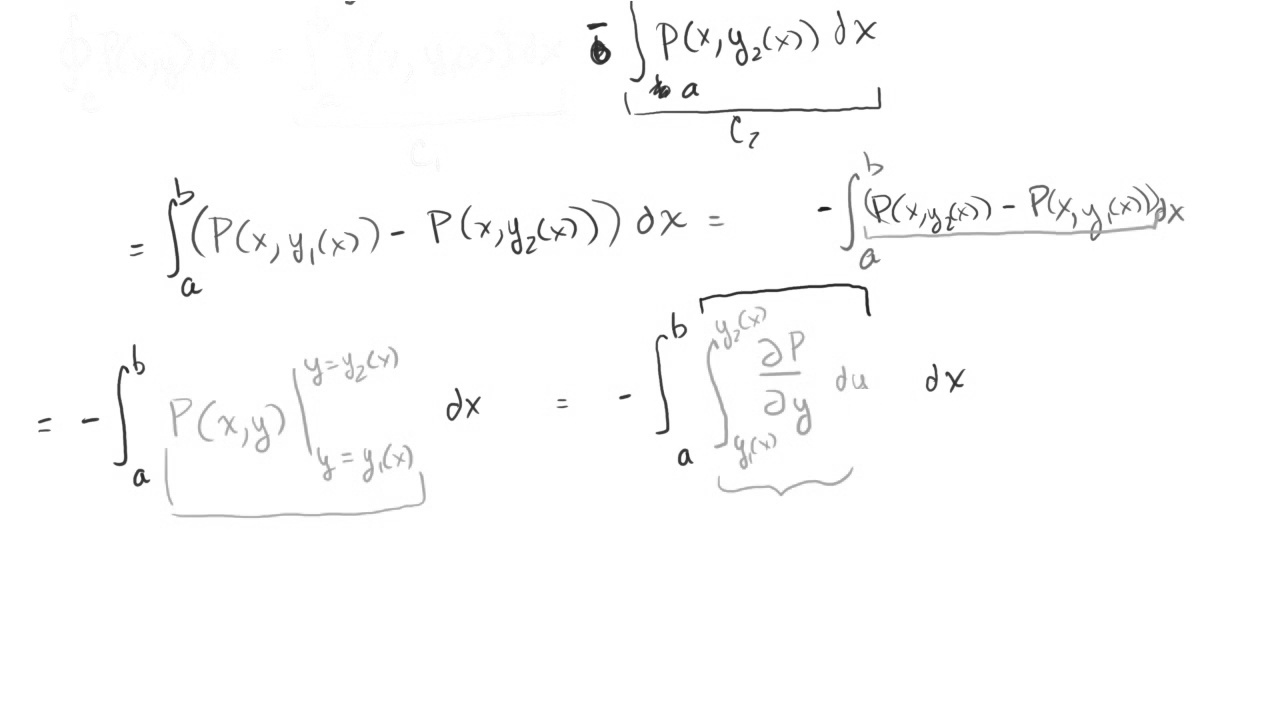 ∮_C P(x,y) dx = ∫ P(x, y₁(x)) dx
C₁
- ∫_a P(x, y₂(x)) dx
C₂
= ∫_a^b (P(x, y₁(x)) - P(x, y₂(x))) dx = - ∫_a^b (P(x, y₂(x)) - P(x, y₁(x))) dx
= - ∫_a^b P(x,y) |_{y = y₁(x)}^{y = y₂(x)} dx = - ∫_a^b ∫_{y₁(x)}^{y₂(x)} ∂P/∂y du dx